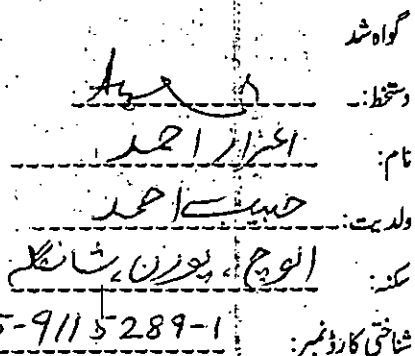 گواہ شد
دستخط:
نام: اعزاز احمد
ولدیت: حبیب احمد
سکنہ: الوچ، پورن، شانگلہ
شناختی کارڈ نمبر: 5-9115289-1